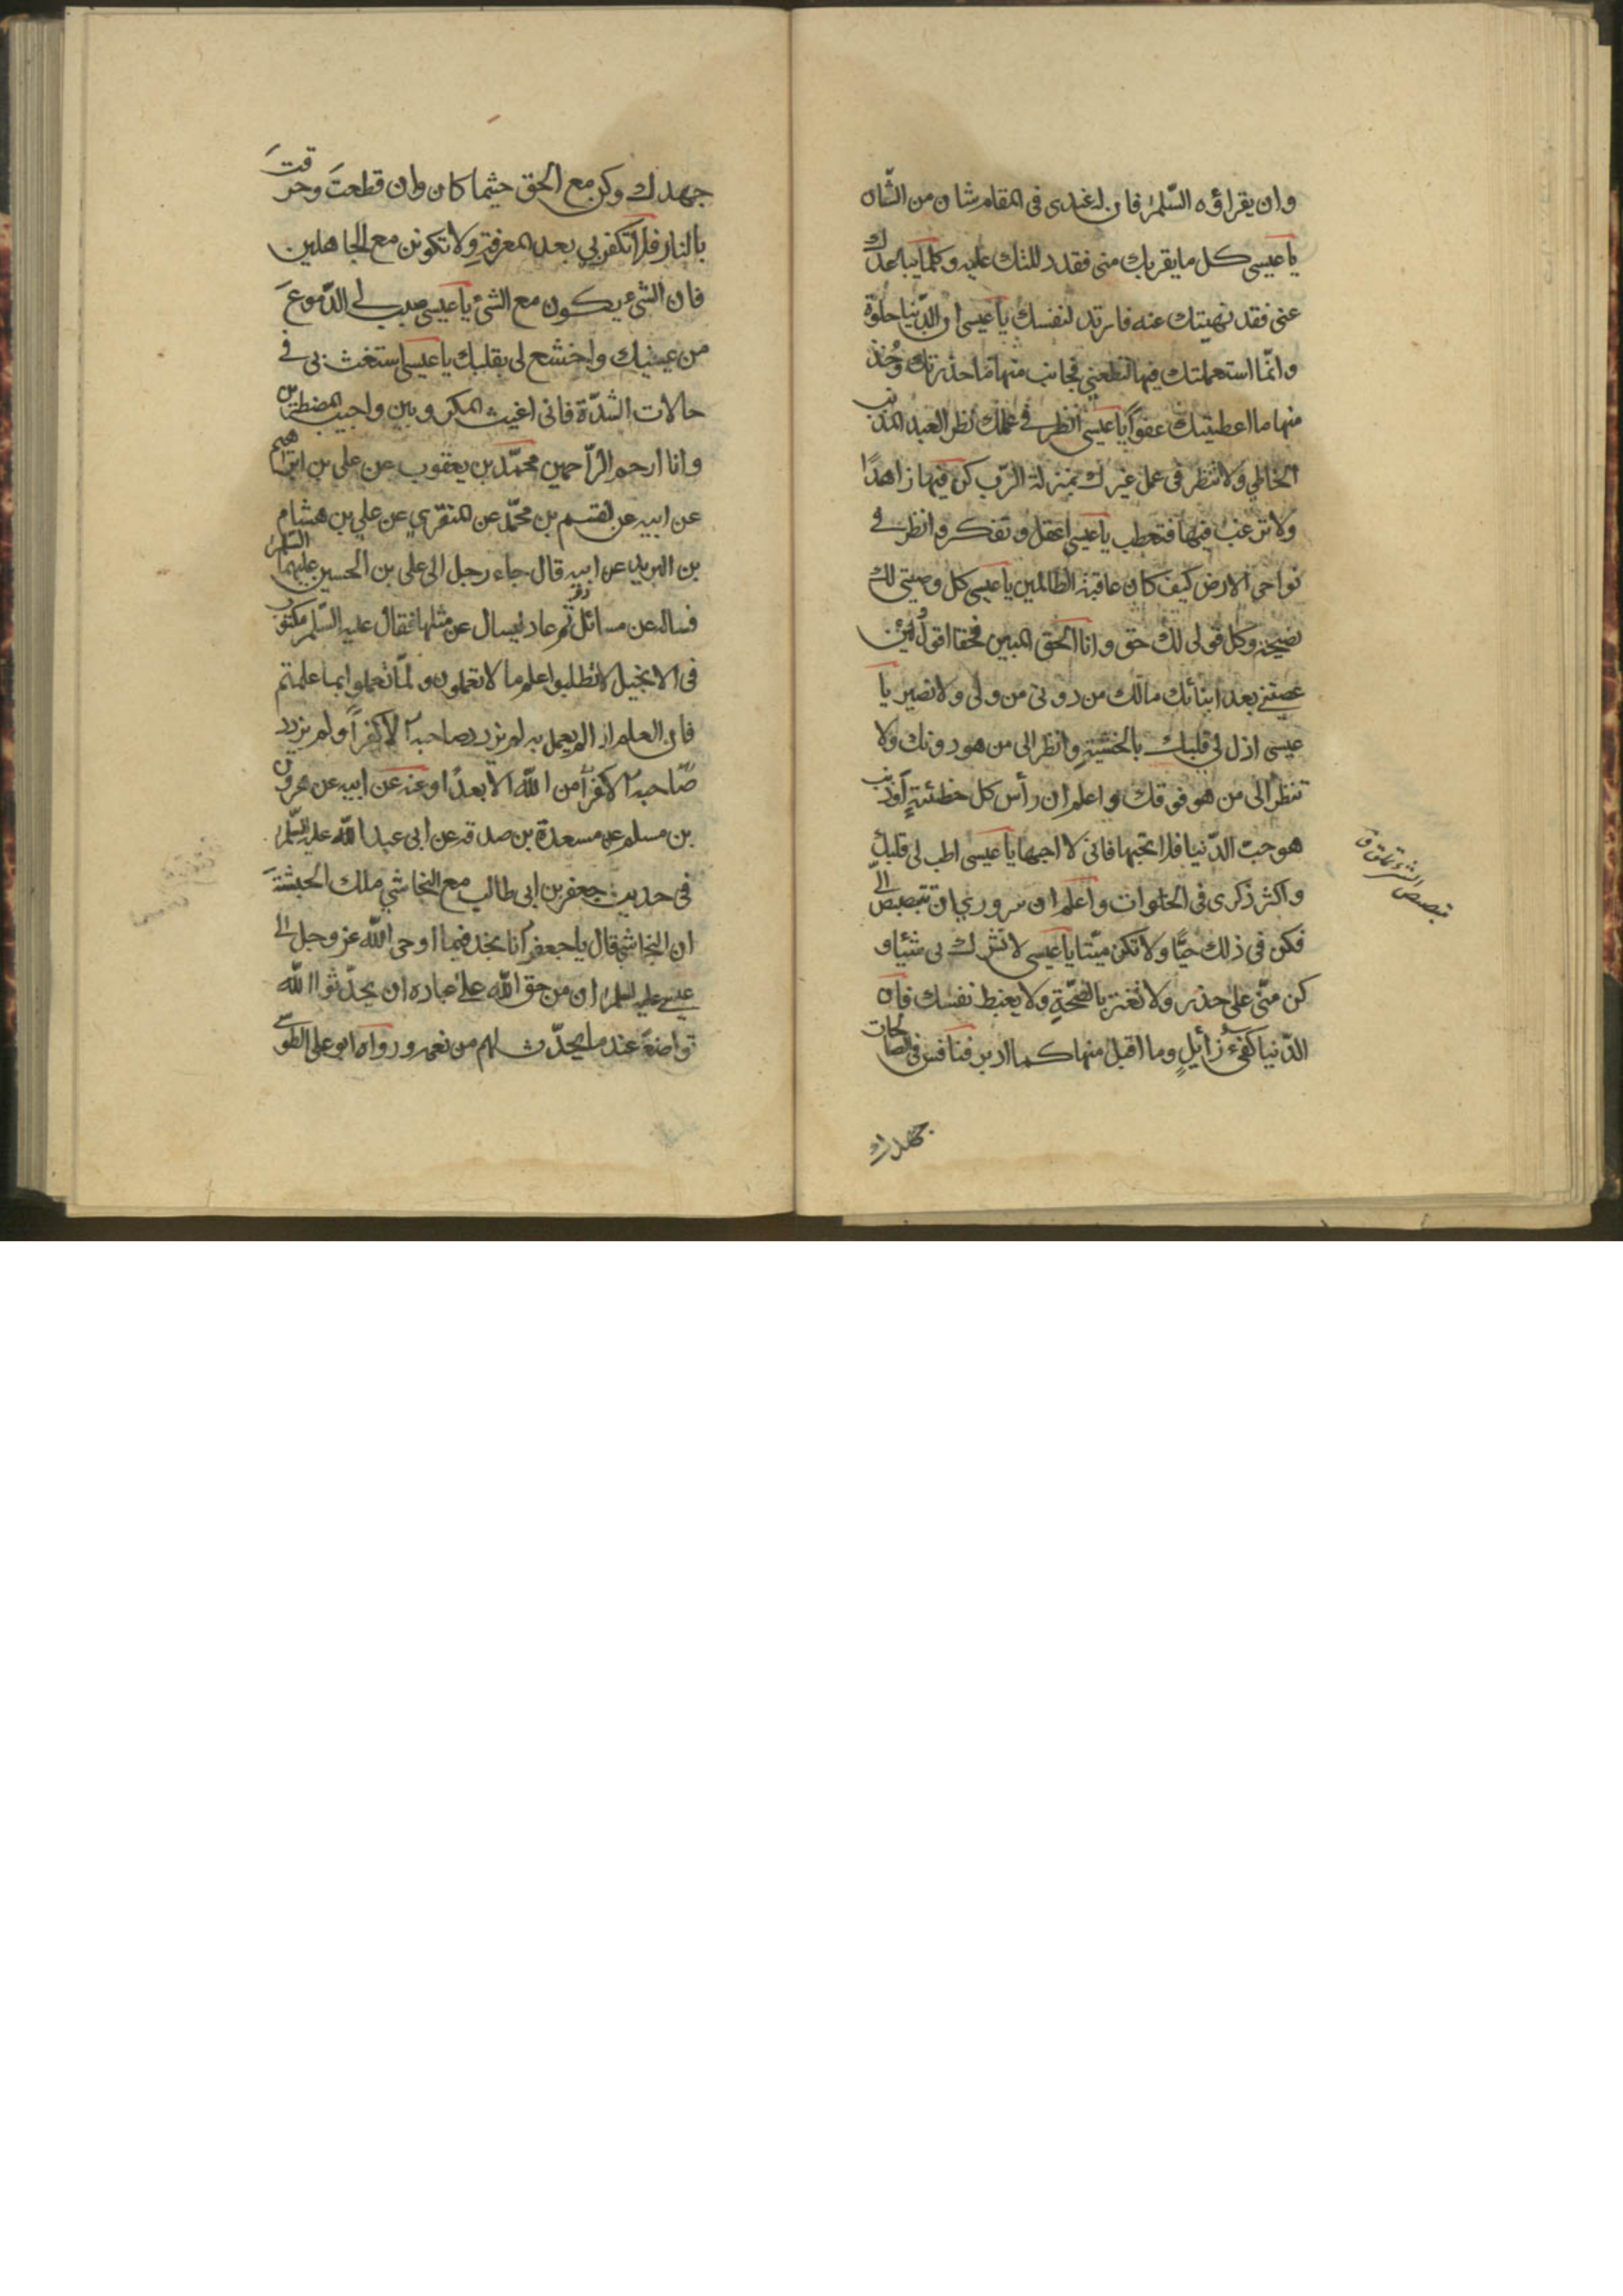 وان يقراؤه السّلم فان له عندى فى المقام شان من الشّان
يا عيسى كل ما يقربك منى فقد دللتك عليه وكلما يباعدك
عنى فقد نهيتك عنه فارتد لنفسك يا عيسى ان الدّنيا حلوة
وانّما استعملتك فيها لتطعنى فجانب منها ما حذرتك وخذ
منها ما اعطيتك عفواً يا عيسى انظر فى عملك نظر العبد المذنب
الخاطى ولا تنظر فى عمل غيرك بمنزلة الرّب كن فيها زاهدًا
ولا ترغب فيها فتعطب يا عيسى اعقل وتفكر وانظر فى
نواحى الارض كيف كان عاقبة الظالمين يا عيسى كل وصيتى لك
نصيحة وكل قولى لك حق وانا الحق المبين فحقا اقول لئن
عصيتنى بعد انبائك مالك من دونى من ولى ولا نصير يا
عيسى اذل لى قلبك بالخشية وانظر الى من هو دونك ولا
تنظر الى من هو فوقك واعلم ان رأس كل خطيئة وذنب
هو حب الدّنيا فلا تحبها فانى لا احبها يا عيسى اطب لى قلبك
واكثر ذكرى فى الخلوات واعلم ان سرورى ان تبصبص الىّ
فكن فى ذلك حيًّا ولا تكن ميّتا يا عيسى لا تشرك بى شيئا و
كن منّى على حذر ولا تغتر بالصّحّة ولا يغبط نفسك فان
الدّنيا كفىء زائل وما اقبل منها كما ادبر فنافس فى الصالحات
جهدك
تبصبص
جهدك وكن مع الحق حيثما كان وان قطعت وحرقت
بالنار فلا تكفر بى بعد المعرفة ولا تكونن مع الجاهلين
فان الشىء يكون مع الشىء يا عيسى صب لى الدّموع
من عينيك واخشع لى بقلبك يا عيسى استغث بى فى
حالات الشدّة فانى اغيث المكروبين واجيب المضطرين
وانا ارحم الرّاحمين محمّد بن يعقوب عن على بن ابرهيم
عن ابيه عن القسم بن محمّد عن المنقرى عن على بن هشام
بن البريد عن ابيه قال جاء رجل الى على بن الحسين عليهما السّلم
فساله عن مسائل ثم عاد ليسال عن مثلها فقال عليه السّلم مكتوب
فى الانجيل لا تطلبوا علم ما لا تعملون ولمّا تعملوا بما علمتم
فان العلم اذا لم يعمل به لم يزدد صاحبه الا كفراً ولم يزدد
صاحبه الا كفراً من الله الا بعدًا وعنه عن ابيه عن هرون
بن مسلم عن مسعدة بن صدقه عن ابى عبد الله عليه السّلم
فى حديث جعفر بن ابى طالب مع النجاشي ملك الحبشة
ان النجاشى قال يا جعفر انا نجد فيما اوحى الله عز وجل الى
عيسى عليه السلم ان من حق الله على عباده ان يحدّثوا الله
تواضعًا عند ما يحدّث لهم من نعمه ورواه ابو على الطوسى